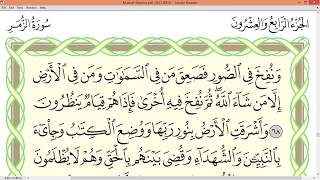 الجزء الرابع والعشرون
سورة الزمر
وَنُفِخَ فِي الصُّورِ فَصَعِقَ مَن فِي السَّمَٰوَٰتِ وَمَن فِي الْأَرْضِ
إِلَّا مَن شَاءَ اللَّهُ ۖ ثُمَّ نُفِخَ فِيهِ أُخْرَىٰ فَإِذَا هُمْ قِيَامٌ يَنظُرُونَ
٦٨ وَأَشْرَقَتِ الْأَرْضُ بِنُورِ رَبِّهَا وَوُضِعَ الْكِتَٰبُ وَجِا۟يٓءَ
بِالنَّبِيِّـۧنَ وَالشُّهَدَاءِ وَقُضِيَ بَيْنَهُم بِالْحَقِّ وَهُمْ لَا يُظْلَمُونَ